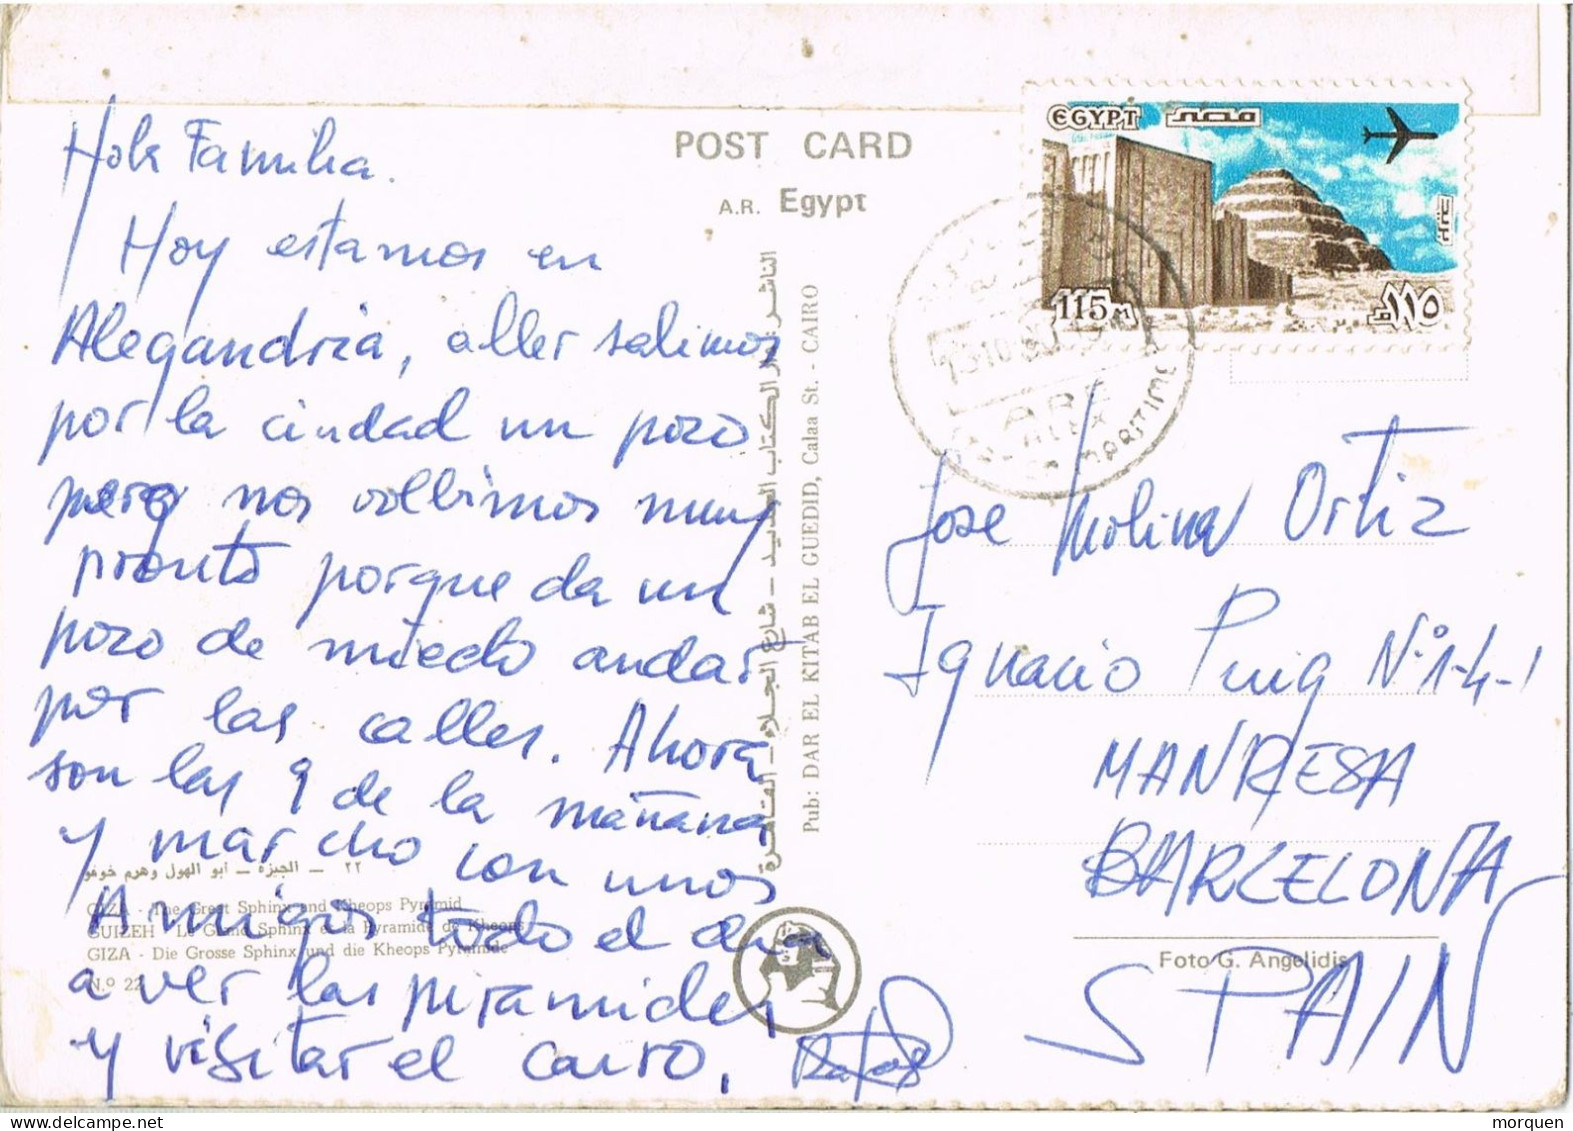 Hola Familia.
Hoy estamos en
Alegandria, aller salimos
por la ciudad un pozo
pero nos vollbimos muy
pronto porque da un
pozo de miedo andar
por las calles. Ahora
son las 9 de la mañana
y marcho con unos
Amigos todo el dia
a ver las piramides
y visitar el cairo,
٢٢ – الجيزه – أبو الهول وهرم خوفو
GIZA - The Great Sphinx and Kheops Pyramid
GUIZEH - Le Grand Sphinx et la Pyramide de Kheops
GIZA - Die Grosse Sphinx und die Kheops Pyramide
N.º 22
POST CARD
A.R. Egypt
الناشر : دار الكتاب الجديد – شارع الجلاء – القاهرة
Pub: DAR EL KITAB EL GUEDID, Calaa St. - CAIRO
EGYPT مصر
115 M ١١٥
A R E
ALEX
Jose Molina Ortiz
Ignacio Puig Nº 1-4-1
MANRESA
BARCELONA
Foto G. Angelidis
SPAIN
morquen